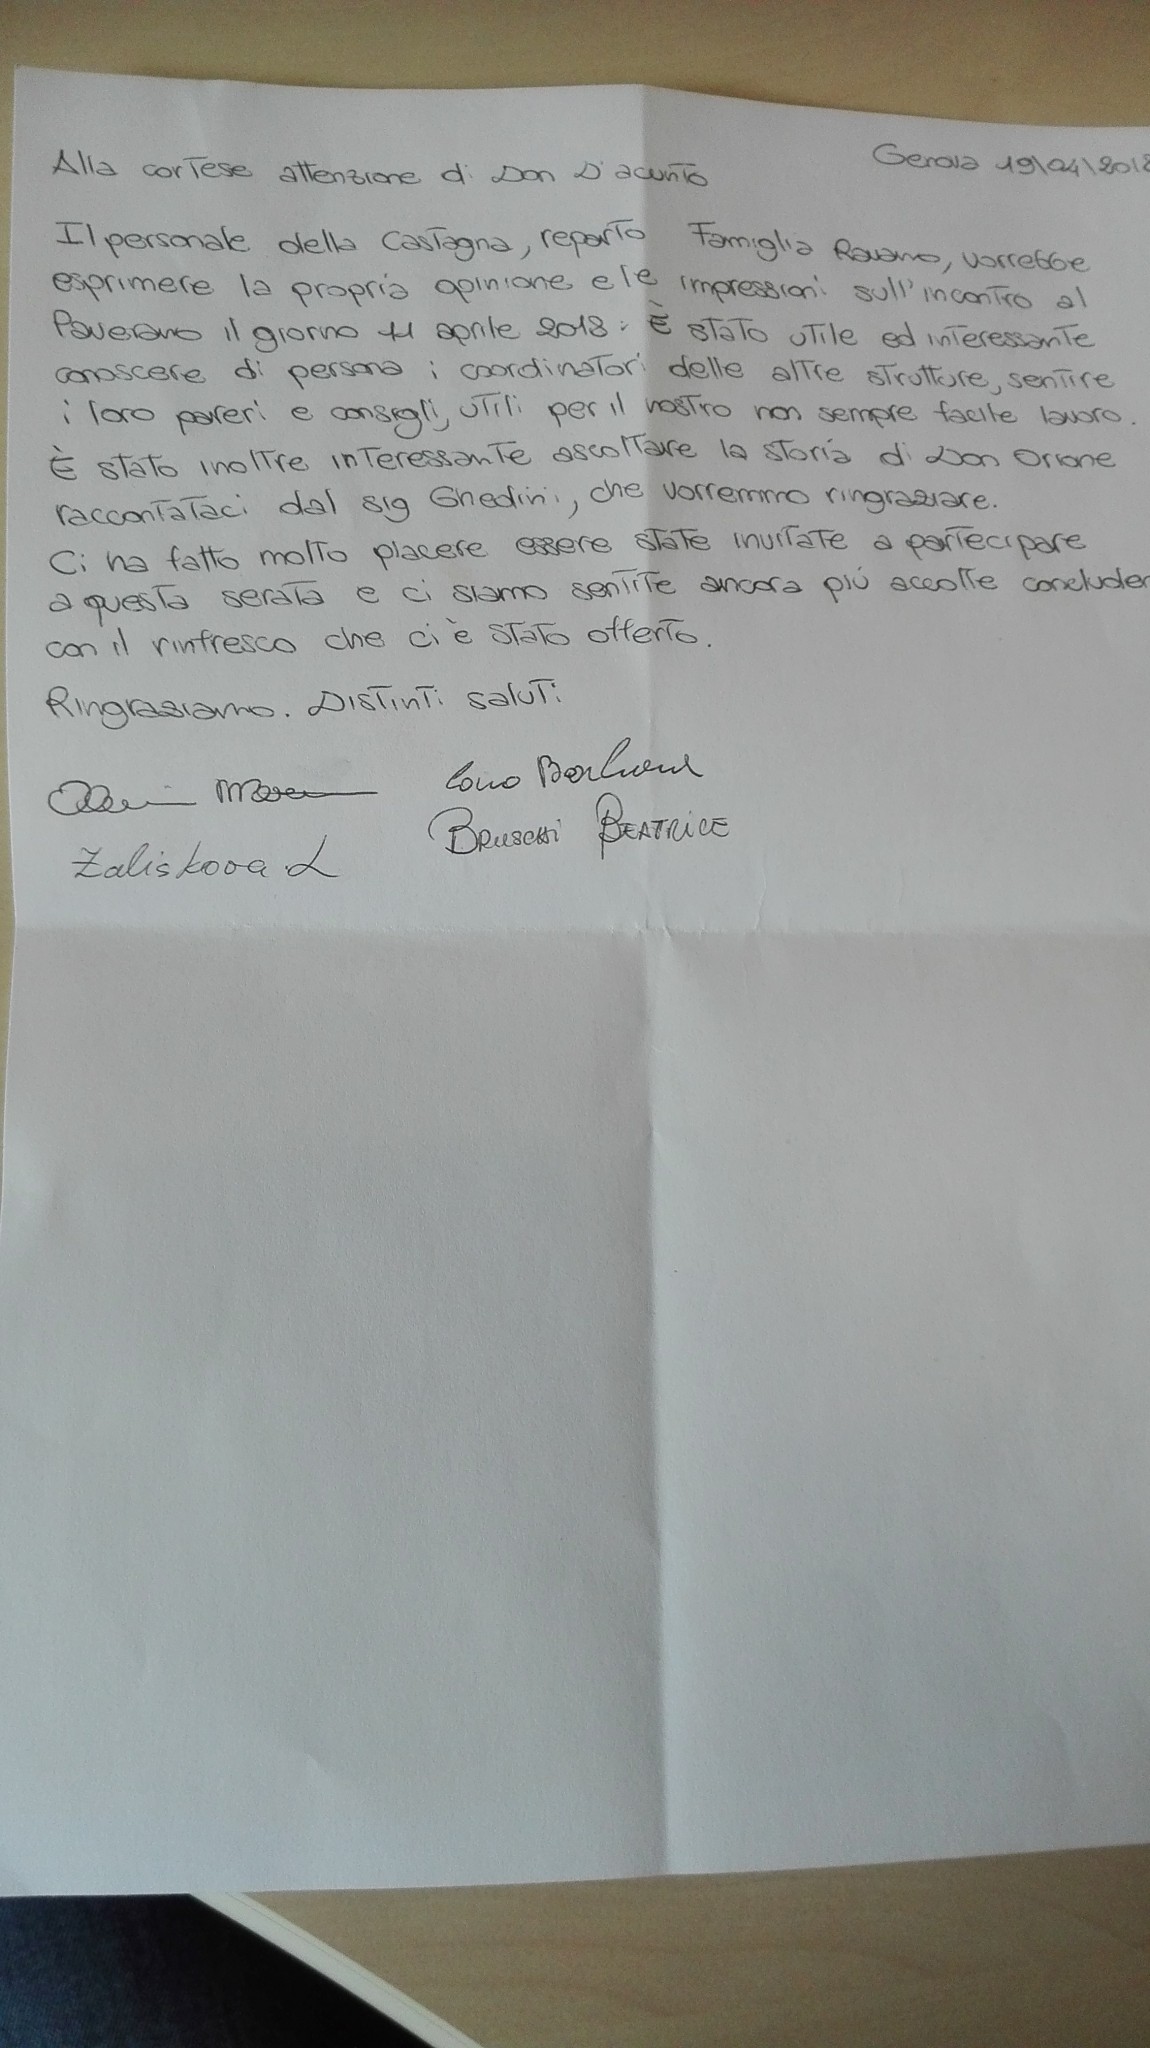 Genova 19\04\2018
Alla cortese attenzione di Don D'acunto
Il personale della Castagna, reparto Famiglia Ravano, vorrebbe
esprimere la propria opinione e le impressioni sull'incontro al
Paverano il giorno 11 aprile 2018: È stato utile ed interessante
conoscere di persona i coordinatori delle altre strutture, sentire
i loro pareri e consigli, utili per il nostro non sempre facile lavoro.
È stato inoltre interessante ascoltare la storia di Don Orione
raccontataci dal sig Ghedini, che vorremmo ringraziare.
Ci ha fatto molto piacere essere state invitate a partecipare
a questa serata e ci siamo sentite ancora più accolte concluden
con il rinfresco che ci è stato offerto.
Ringraziamo. Distinti saluti
Zaliskova L
Bruschi Beatrice